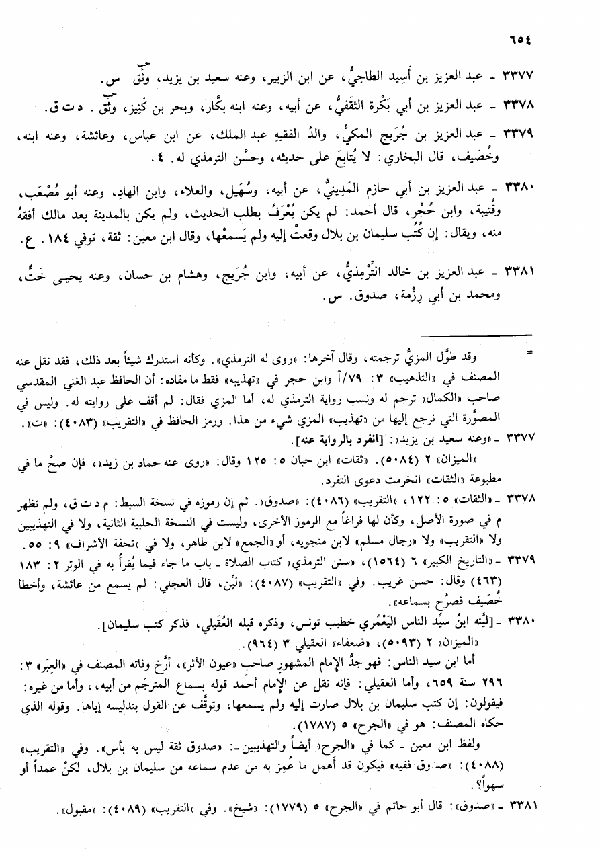 ٦٥٤
٣٣٧٧ ـ عبد العزيز بن أَسِيد الطاحِيُّ، عن ابن الزبير، وعنه سعيد بن يزيد، وثِّق س.
٣٣٧٨ ـ عبد العزيز بن أبي بَكْرة الثقفيُّ، عن أبيه، وعنه ابنه بكّار، وبحر بن كَنِيز، وثِّق. د ت ق.
٣٣٧٩ ـ عبد العزيز بن جُرَيج المكيُّ، والدُ الفقيهِ عبد الملك، عن ابن عباس، وعائشة، وعنه ابنه،
وخُصَيف، قال البخاري: لا يُتابَع على حديثه، وحسَّن الترمذي له. ٤.
٣٣٨٠ ـ عبد العزيز بن أبي حازم المَدِينيُّ، عن أبيه، وسُهَيل، والعلاء، وابن الهادِ، وعنه أبو مُصْعَب،
وقُتيبة، وابن حُجْر، قال أحمد: لم يكن يُعْرَف بطلب الحديث، ولم يكن بالمدينة بعد مالك أفقهُ
منه، ويقال: إن كُتُب سليمان بن بلال وقعتْ إليه ولم يَسمعْها، وقال ابن معين: ثقة، توفي ١٨٤. ع.
٣٣٨١ ـ عبد العزيز بن خالد التِّرْمِذيُّ، عن أبيه، وابن جُريج، وهشام بن حسان، وعنه يحيى خَتُّ،
ومحمد بن أبي رِزْمة، صدوق. س.
= وقد طوَّل المزيُّ ترجمته، وقال آخرها: «روى له الترمذي». وكأنه استدرك شيئاً بعد ذلك، فقد نقل عنه
المصنف في «التذهيب» ٣: ٧٩/أ وابن حجر في «تهذيبه» فقط ما مفاده: أن الحافظ عبد الغني المقدسي
صاحب «الكمال» ترجم له ونسب رواية الترمذي له، أما المزي فقال: لم أقف على روايته له. وليس في
المصوَّرة التي نرجع إليها من «تهذيب» المزي شيء من هذا. ورمز الحافظ في «التقريب» (٤٠٨٣): «ت».
٣٣٧٧ ـ «وعنه سعيد بن يزيد»: [انفرد بالرواية عنه].
«الميزان» ٢ (٥٠٨٤). «ثقات» ابن حبان ٥: ١٢٥ وقال: «روى عنه حماد بن زيد»، فإن صحَّ ما في
مطبوعة «الثقات» انخرمت دعوى التفرد.
٣٣٧٨ ـ «الثقات» ٥: ١٢٢، «التقريب» (٤٠٨٦): «صدوق». ثم إن رموزه في نسخة السبط: م د ت ق، ولم تظهر
م في صورة الأصل، وكأن لها فراغاً مع الرموز الأخرى، وليست في النسخة الحلبية الثانية، ولا في التهذيبين
ولا «التقريب» ولا «رجال مسلم» لابن منجويه، أو «الجمع» لابن طاهر، ولا في «تحفة الأشراف» ٩: ٥٥.
٣٣٧٩ ـ «التاريخ الكبير» ٦ (١٥٦٤)، «سنن الترمذي» كتاب الصلاة ـ باب ما جاء فيما يُقرأ به في الوتر ٢: ١٨٣
(٤٦٣) وقال: حسن غريب. وفي «التقريب» (٤٠٨٧): «ليِّن، قال العجلي: لم يسمع من عائشة، وأخطأ
خُصَيف فصرَّح بسماعه».
٣٣٨٠ ـ [ليَّنه ابنُ سيِّد الناس اليَعْمُري خطيب تونس، وذكره قبله العُقَيلي، فذكر كتب سليمان].
«الميزان» ٢ (٥٠٩٣)، «ضعفاء» العقيلي ٣ (٩٦٤).
أما ابن سيد الناس: فهو جدُّ الإمام المشهور صاحب «عيون الأثر»، أرَّخ وفاته المصنف في «العِبَر» ٣:
٢٩٦ سنة ٦٥٩، وأما العقيلي: فإنه نقل عن الإمام أحمد قوله بسماع المترجَم من أبيه،، وأما من غيره:
فيقولون: إن كتب سليمان بن بلال صارت إليه ولم يسمعها، وتوقَّف عن القول بتدليسه إياها. وقوله الذي
حكاه المصنف: هو في «الجرح» ٥ (١٧٨٧).
ولفظ ابن معين ـ كما في «الجرح» أيضاً والتهذيبين ـ: «صدوق ثقة ليس به بأس». وفي «التقريب»
(٤٠٨٨): «صدوق فقيه» فيكون قد أهمل ما غُمِز به من عدم سماعه من سليمان بن بلال، لكنْ عمداً أو
سهواً؟.
٣٣٨١ ـ «صدوق»: قال أبو حاتم في «الجرح» ٥ (١٧٧٩): «شيخ». وفي «التقريب» (٤٠٨٩): «مقبول».